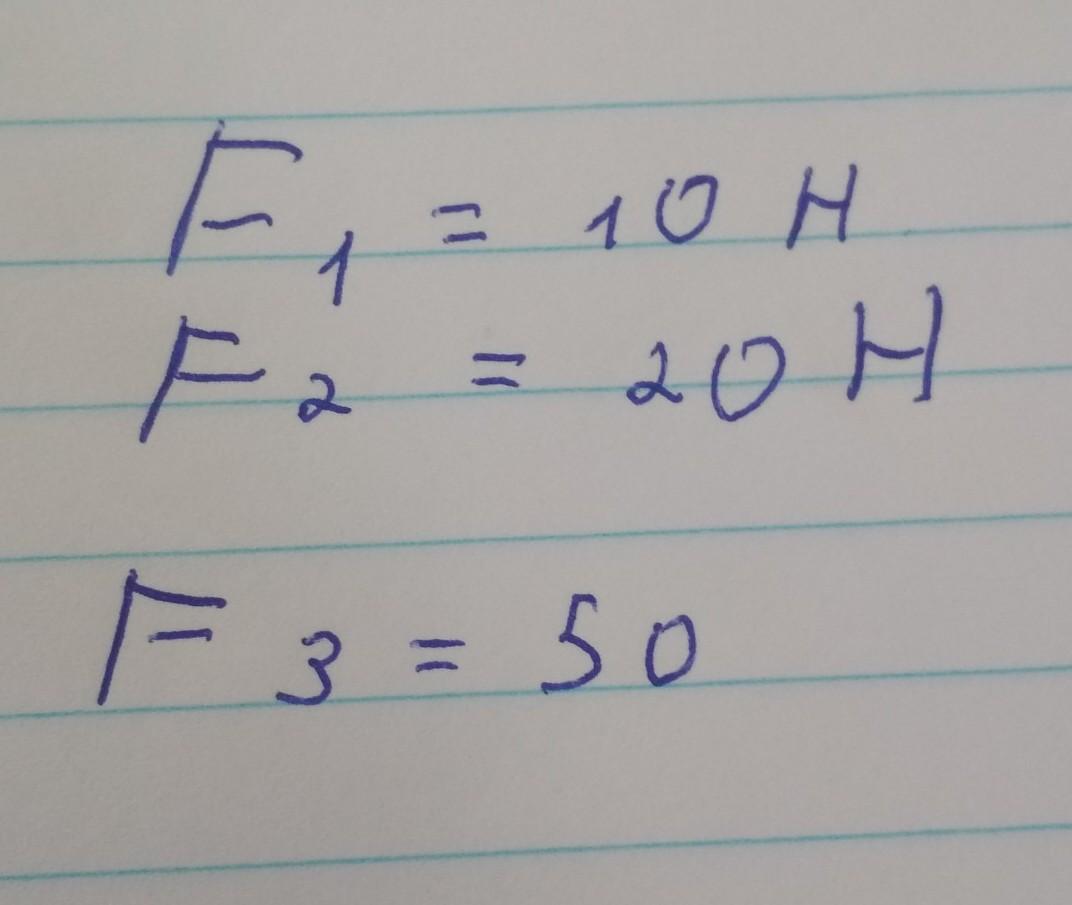 F₁ = 10 Н
F₂ = 20 Н
F₃ = 50